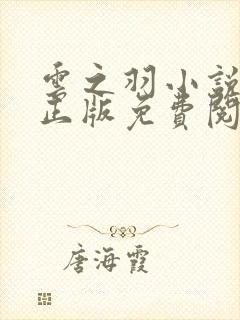 雲之羽小說
正版免費閱
唐海霞